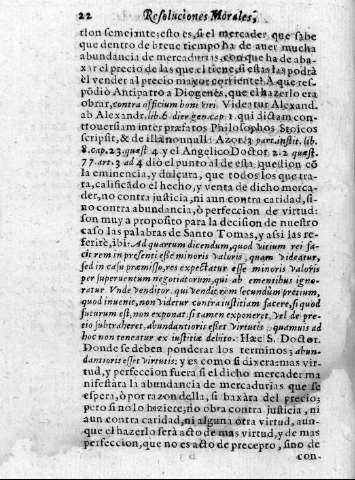 22 Resoluciones Morales,
tion semejante; esto es, si el mercader que sabe
que dentro de breue tiempo ha de auer mucha
abundancia de mercadurias, con que ha de aba-
xar el precio de las que el tiene, si estas las podrà
èl vender al precio mayor corriente? A que res-
põdiò Antipatro a Diogenès, que el hazerlo era
obrar, contra officium boni viri. Videatur Alexand.
ab Alexandr. lib. 6. dier gen. cap. 1. qui dictam con-
trouersiam inter præfatos Philosophos Stoicos
scripsit, & de illa nonnulla Azor. 3. part. instit. lib.
8. cap. 23. quæst. 4. y el Angelico Doctor 2. 2 quæst.
77. art. 3 ad 4 dio el punto al de esta question cõ
la eminencia, y dulçura, que todos los que tra-
ta, calificãdo el hecho, y venta de dicho merca-
der, no contra justicia, ni aun contra caridad, si-
no contra abundancia, ò perfeccion de virtud:
son muy a proposito para la decision de nuestro
caso las palabras de Santo Tomas, y assi las re-
ferirè, ibi: Ad quartum dicendum, quod vitium rei fa-
cit rem in presenti esse minoris valoris, quam videatur,
sed in casu præmisso, res expectatur esse minoris valoris
per superuentum negotiatorum, qui ab ementibus igno-
ratur. Vnde venditor, qui vendit rem secundum pretium,
quod inuenit, non videtur contra iustitiam facere, si quod
futurum est, non exponat. si tamen exponeret, vel de pre-
tio subtraheret, abundantioris esset virtutis, quamuis ad
hoc non teneatur ex iustitiæ debito. Hæc S. Doctor.
Donde se deben ponderar los terminos; abun-
dantioris esset virtutis: y es como si dixera: mas vir-
tud, y perfeccion fuera si el dicho mercader ma
nifestàra la abundancia de mercadurias que se
espera, ò por razon della, si baxàra del precio;
pero si no lo hiziere, no obra contra justicia, ni
aun contra caridad, ni alguna otra virtud, aun-
que el hazerlo serà acto de mas virtud, y de mas
perfeccion, que no es acto de precepto, sino de
con-